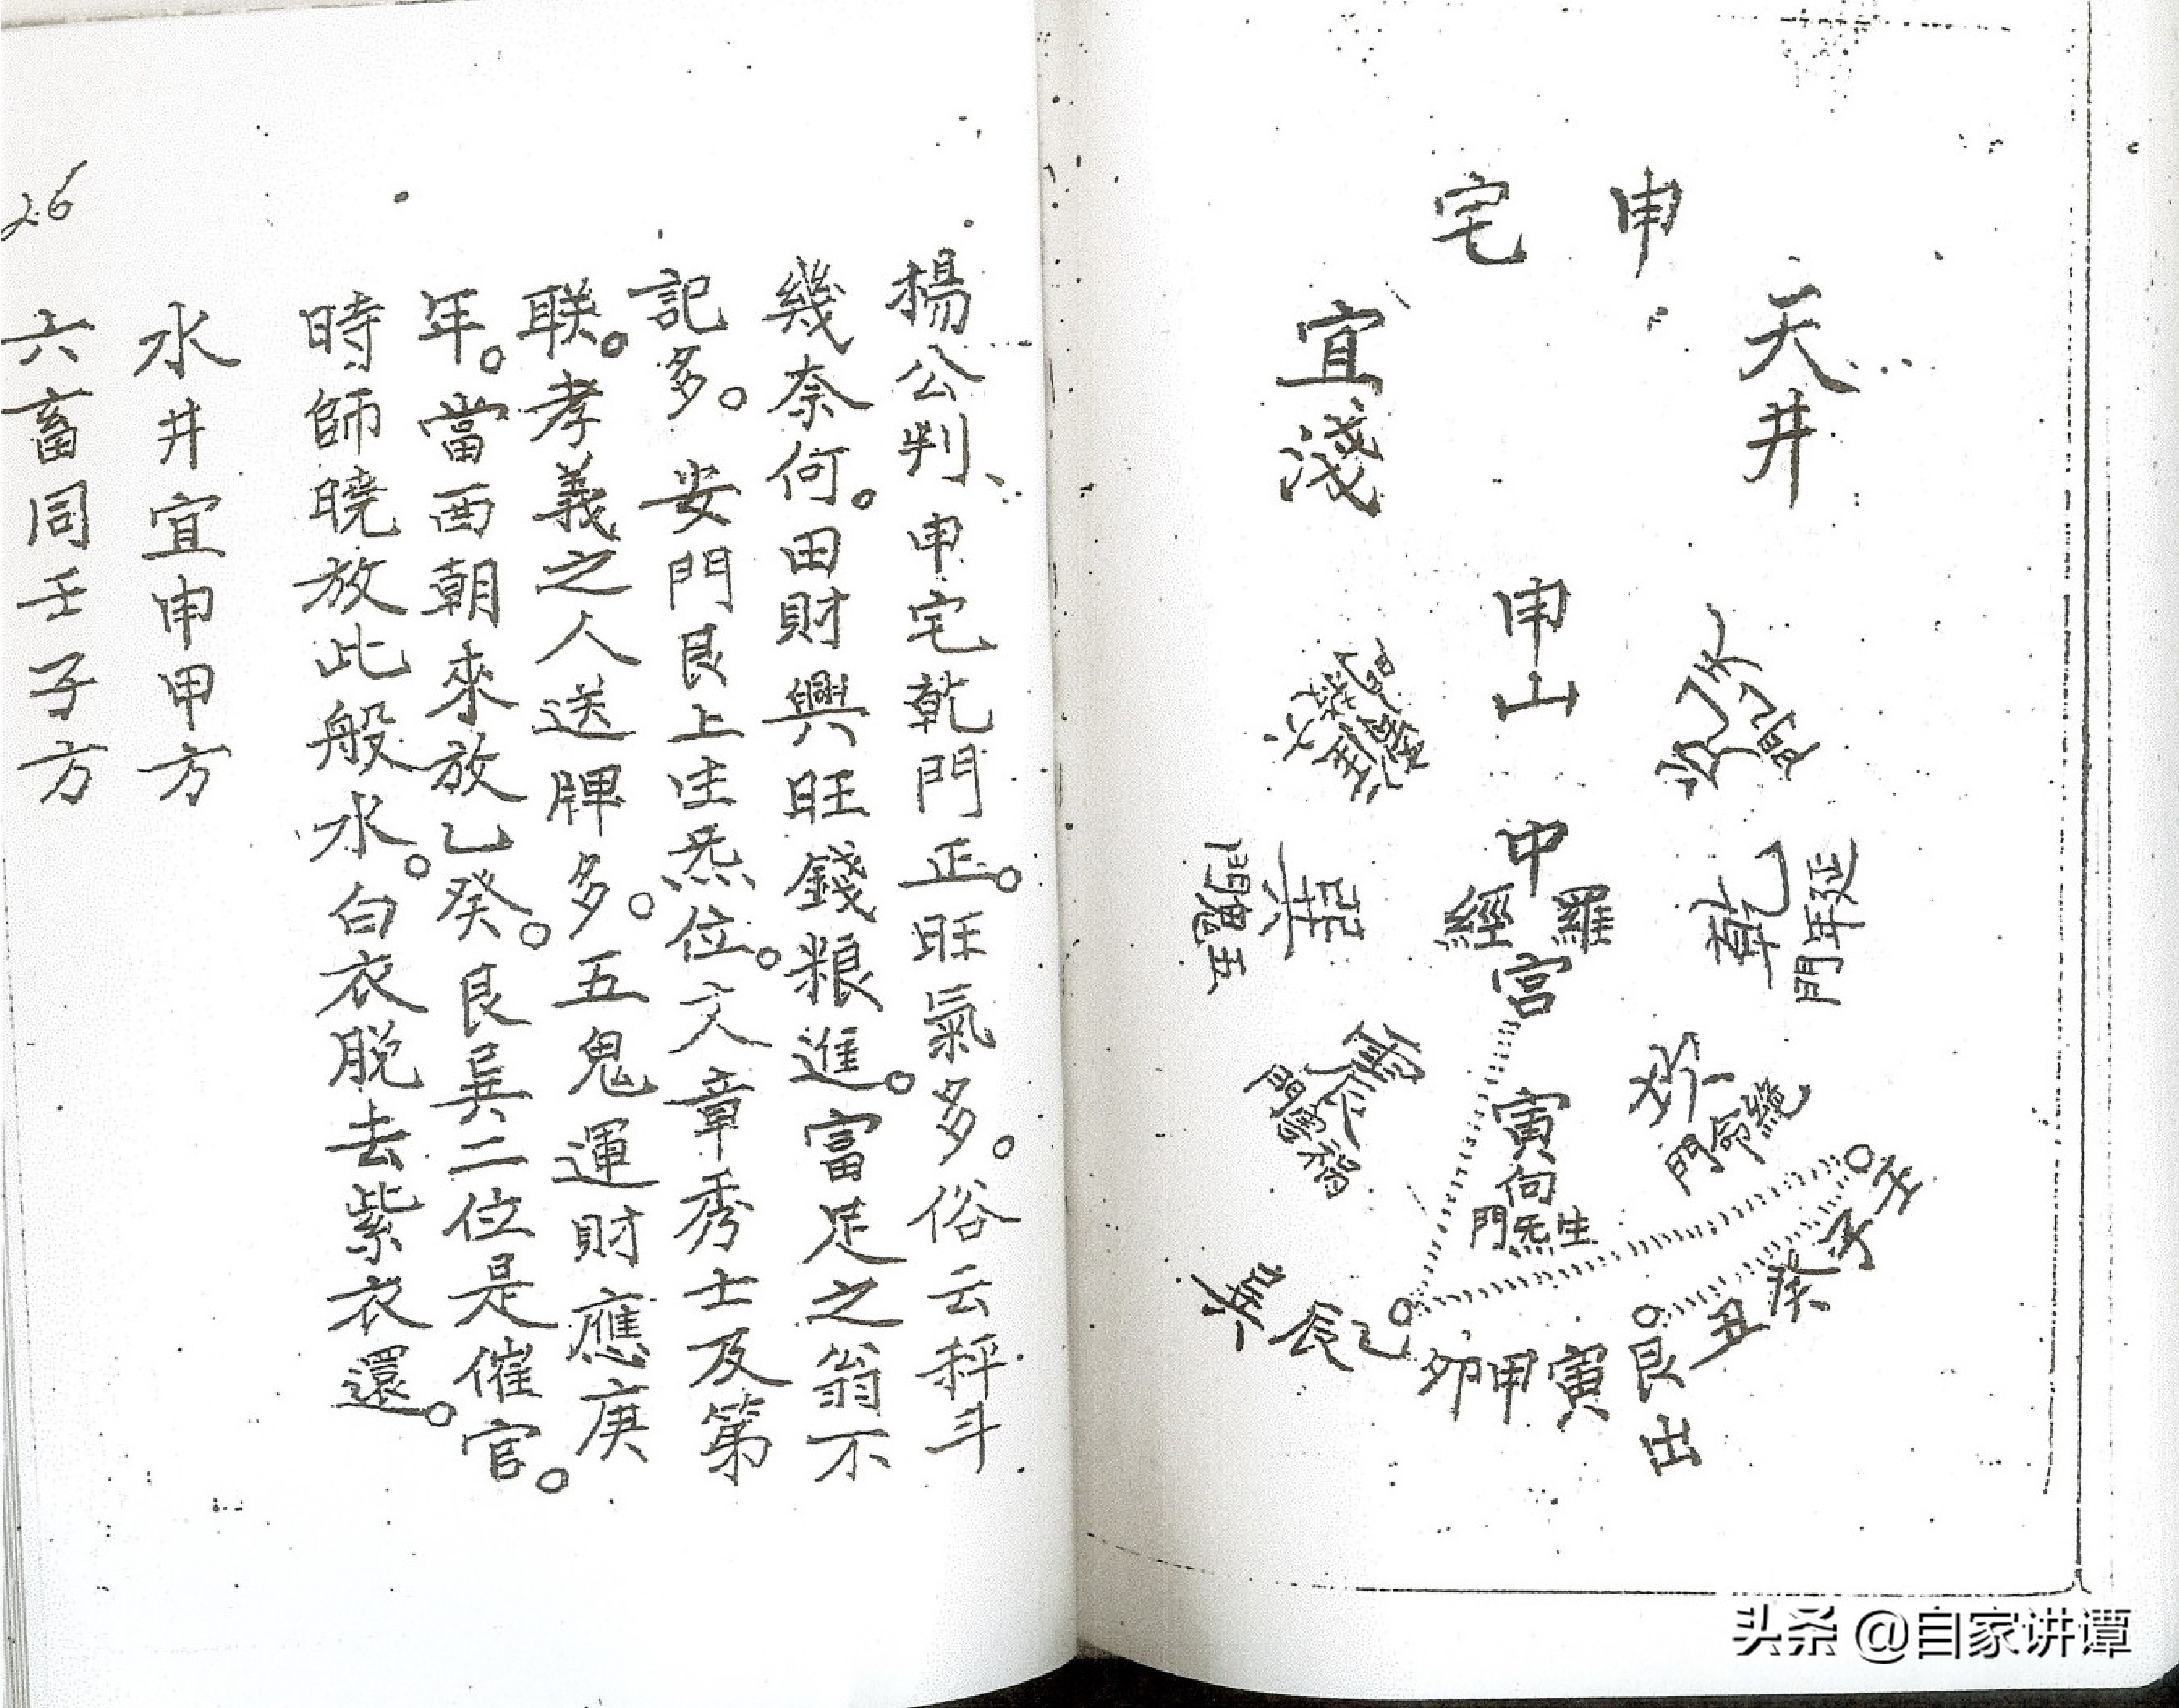 申宅
天井
宜淺
申山
中
羅經
宮
乾
延年門
絶命門
五鬼門
禍害門
寅向
生炁門
壬子癸丑艮寅甲卯乙辰巽
出
楊公判、申宅乾門正。旺氣多。俗云秤斗
幾奈何。田財興旺錢粮進。富足之翁不
記多。安門艮上生炁位。文章秀士及第
联。孝義之人送牌多。五鬼運財應庚
年。當西朝來放乙癸。艮巽二位是催官。
時師曉放此般水。白衣脱去紫衣還。
水井宜申甲方
六畜同壬子方
26
头条 @自家讲谭